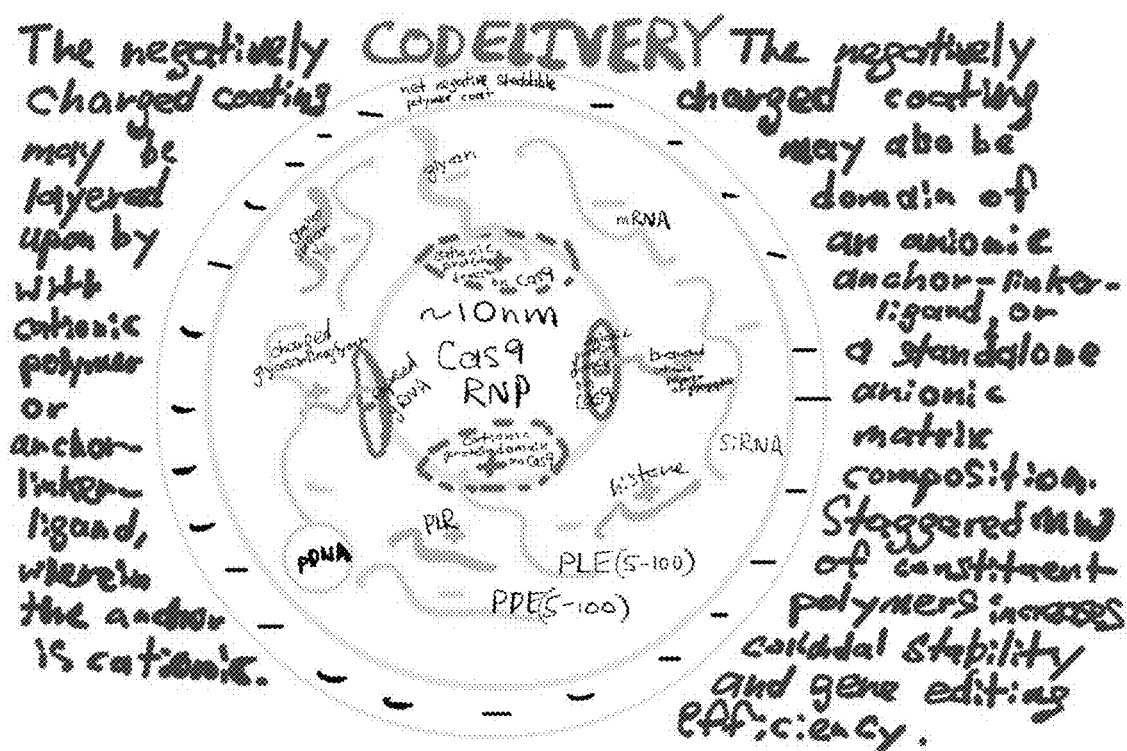 CODELIVERY
The negatively
Charged coating
may be
layered
upon by
with
cationic
polymer
or
anchor-
linker-
ligand,
wherein
the anchor
is cationic.
The negatively
charged coating
may also be
domain of
an anionic
anchor-linker-
ligand, or
a standalone
anionic
matrix
composition.
Staggered MW
of constituent
polymers increases
colloidal stability
and gene editing
efficiency.
net negative sheddable
polymer coat
glycan
mRNA
cationic
protein
domain
on Cas9
~10nm
Cas9
RNP
charged
gRNA
Cas9
siRNA
cationic
protein domain
on Cas9
histone
PLR
pDNA
PLE(5-100)
PDE(5-100)